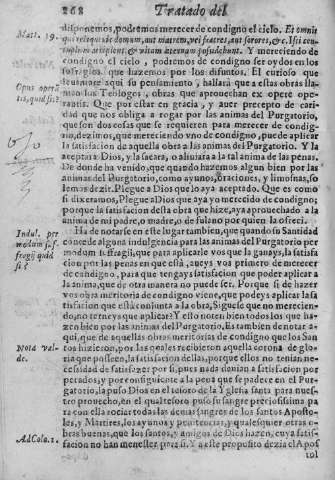 268 Tratado del
Matt. 19.
disponemos, podremos merecer de condigno el cielo. Et omnis
qui reliquerit domum, aut matrem, vel fratres, aut sorores, &c. centuplum accipiet, & vitam æternam possidebit. Y mereciendo de condigno
el cielo, podremos de condigno ser oydos en los
sufragios que hazemos por los difuntos. El curioso que
leyere aqui su pensamiento, hallará que a estas obras llaman
los Teologos, obras que aprouechan ex opere operantis.
Opus operãtis, quid sit?
Que por estar en gracia, y auer precepto de caridad
que nos obliga a rogar por las animas del Purgatorio,
que son dos cosas que se requieren para merecer de condigno,
dezimos, que mereciendo vno de condigno, puede aplicar
la satisfacion de aquella obra a las animas del Purgatorio. Y la
acepta a Dios, y la sacara, o aliuiara a la tal anima de las penas.
De donde ha venido, que quando hazemos algun bien por las
animas del Purgatorio, como ayunos, oraciones, y limosnas, solemos
dezir. Plegue a Dios que lo aya aceptado. Que es como
si dixeramos, Plegue a Dios que aya yo merecido de condigno;
porque la satisfacion desta obra que hize, aya aprouechado a la
anima de mi padre, o madre, o de fulano por quien la ofreci.
Indul. per modum suffragij quid sit?
Ha de notarse en este lugar tambien, que quando su Santidad
concede alguna indulgencia para las animas del Purgatorio per
modum suffragij, que para aplicarle vos que la ganays, la satisfacion
por las penas en que està, aueys vos primero de merecer
de condigno, para que tengays satisfacion que poder aplicar a
la anima, que de otra manera no puede ser. Porque si de hazer
vos obra meritoria de condigno viene, que podeys aplicar la satisfacion
que està conjunta a la obra, Siguese que no mereciendo,
no terneys que aplicar? Y esto noten bien todos los que hazen
bien por las animas del Purgatorio. Es tambien de notar aqui,
que de aquellas obras meritorias de condigno que los Santos
Nota valde.
hizieron, por las quales recibieron aquella corona de gloria
que posseen, la satisfacion dellas, porque ellos no tenian necessidad
de satisfazer por si, pues nada deuian a satisfacion por
pecados, y por consiguiente a la pena que se padece en el Purgatorio,
la puso Dios en el tesoro de la Yglesia santa para nuestro
prouecho, en el qual tesoro puso su sangre preciosissima para
con ella rociar todas las demas sangres de los santos Apostoles,
y Martires, los ayunos y penitencias, y qualesquier otras obras
buenas, que los santos, y amigos de Dios hazen, cuya satisfacion
Ad Colo. 1.
no han menester para si. Y a este proposito dezia el Apos
tol